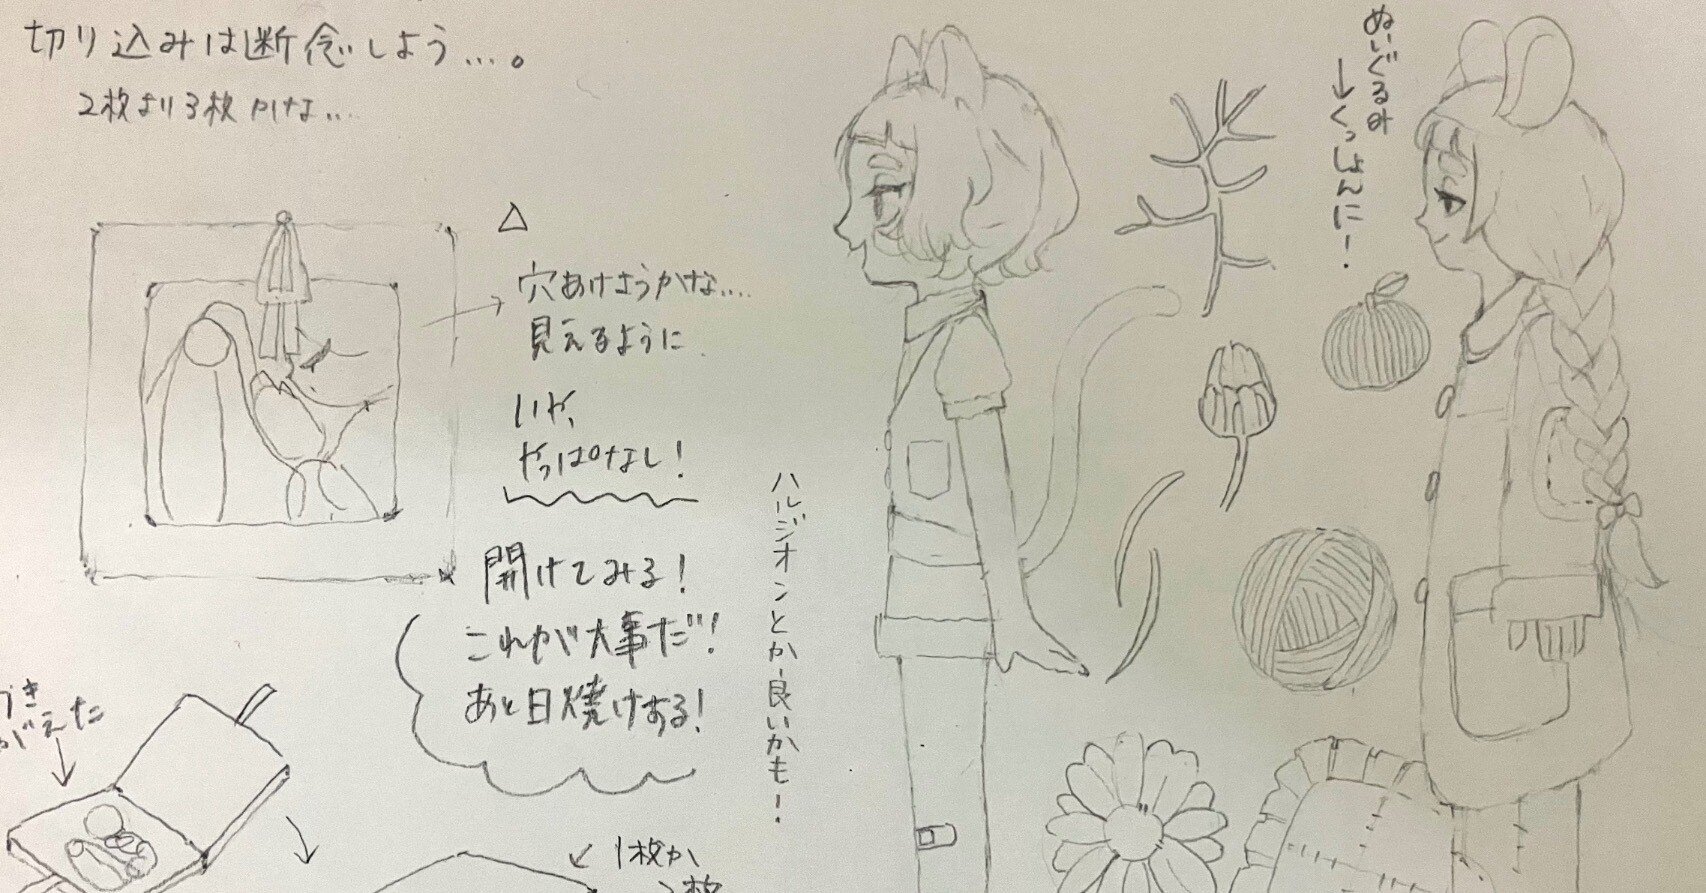 切り込みは断念しよう…。
2枚より3枚かけな…
△
穴あけようかな…
見えるように
いや、
やっぱなし!
開けてみる!
これが大事だ!
あと日焼けする!
ハルジオンとか良いかも!
ぬいぐるみ
→くっしょんに!
1枚か
2枚